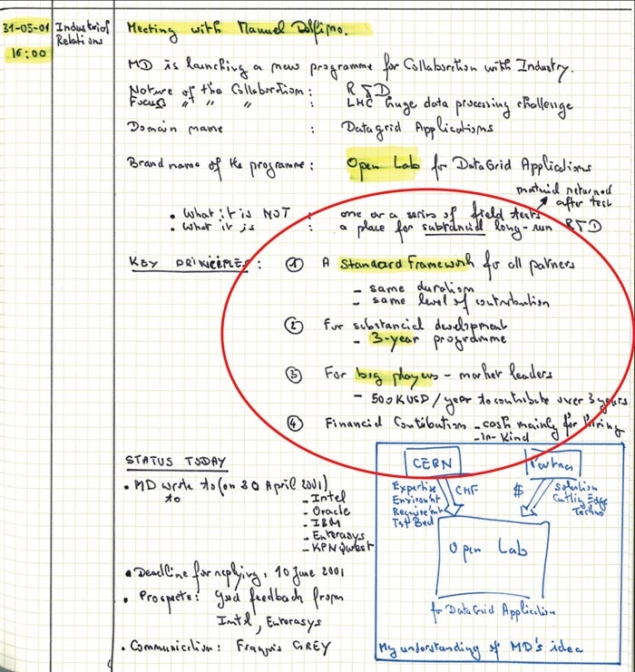 31-05-01 Industrial Relations Meeting with Manuel Delfino.
16:00
MD is launching a new programme for Collaboration with Industry.
Nature of the Collaboration : R&D
Focus " " " : LHC huge data processing challenge
Domain name : Datagrid Applications
Brand name of the programme : Open Lab for DataGrid Applications
material returned after test
• What it is NOT : one or a series of field tests
• What it is : a place for substancial long-run R&D
KEY PRINCIPLES : ① A Standard Framework for all partners
- same duration
- same level of contribution
② For substancial development
- 3-year programme
③ For big players - market leaders
- 500K USD / year to contribute over 3 years
④ Financial Contribution - cash mainly for hiring
- in-kind
STATUS TODAY
• MD wrote to (on 20 April 2001)
to
- Intel
- Oracle
- IBM
- Enterasys
- KPNQwest
• Deadline for replying : 10 June 2001
• Prospects : good feedback from
Intel, Enterasys
• Communication : François GREY
CERN Partner
Expertise
Environmt
Requiremt
Test Bed
CHF $
Solution
Cutting Edge
Techno
Open Lab
for DataGrid Application
My understanding of MD's idea